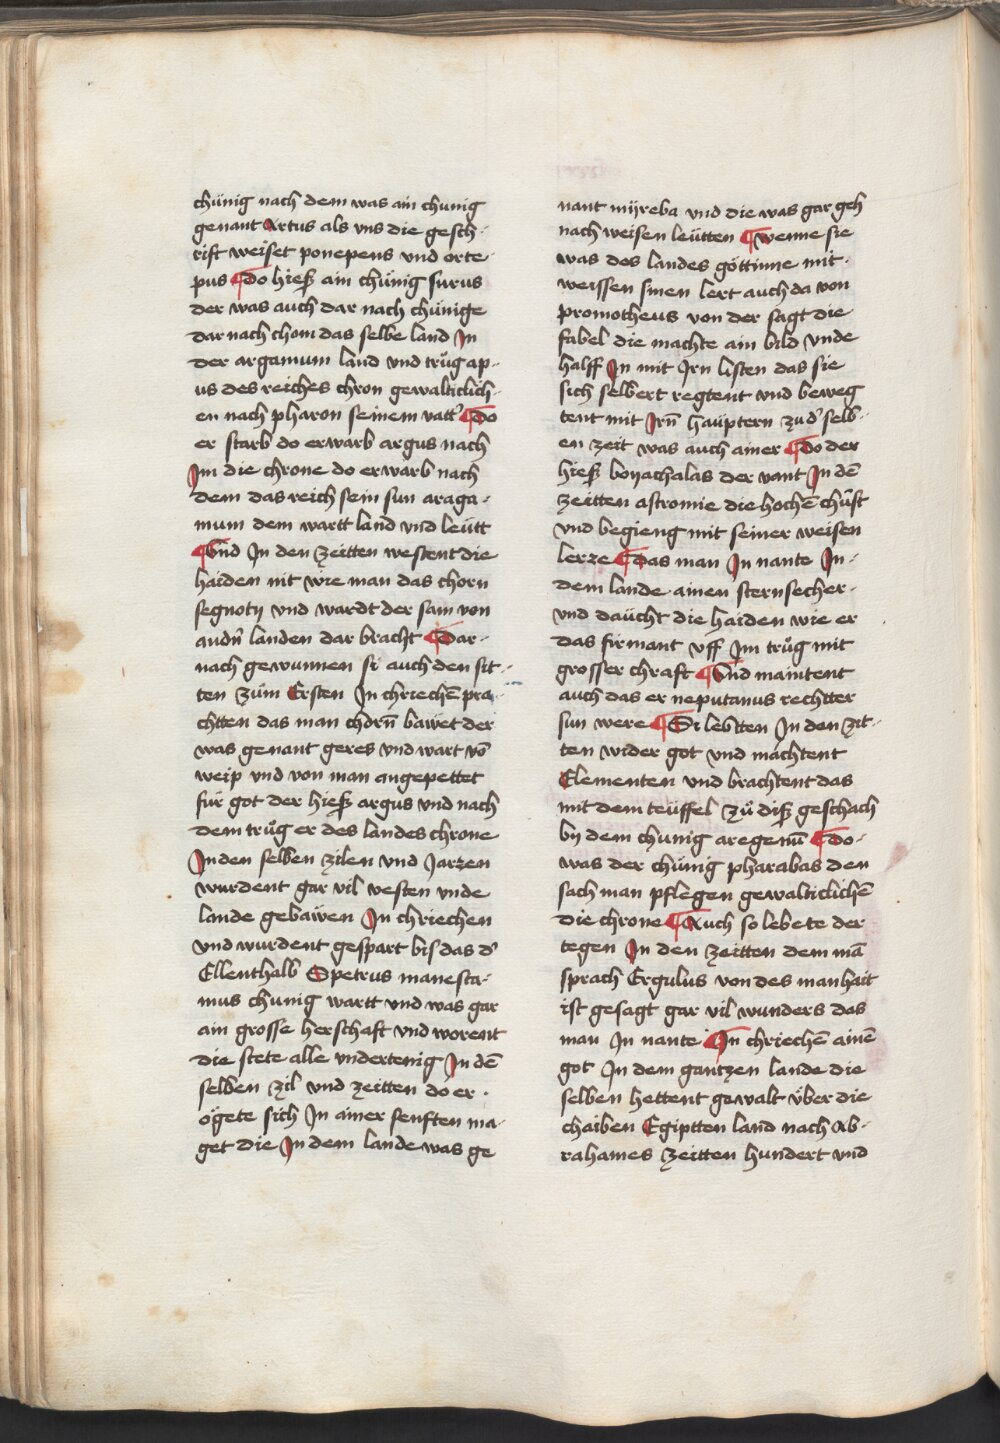 chünig nach dem was ain chunig
genant Artus als vns die gesch-
rift weiset ponepens vnd orte-
pus ¶ Do hieß ain chünig surus
der was auch dar nach chünige
dar nach chom das selbe land In
der argamum land vnd trůg ap-
us des reiches chron gewalticlich-
en nach pharon seinem vatt' ¶ Do
er starb do erwarb argus nach
Im die chrone do erwarb nach
dem das reich sein sun araga-
mum dem wartt land vnd leütt
¶ Vnd In den zeitten westent die
haiden nit wie man das chorn
segnoty vnd wardt der sam von
andn̄ landen dar bracht ¶ Dar-
nach gewunnen si auch den sit-
ten zům Ersten In chriechē pra-
chtten das man chorn̄ bawet der
was genant geres vnd wart vō
weip vnd von man angepettet
für got der hieß argus vnd nach
dem trůg er des landes chrone
In den selben zilen vnd Jarzen
wurdent gar vil vesten vnde
lande gebawen In chriechen
vnd wurdent gespart bis das d'
Ellenthalb Spetrus manesta-
mus chunig wartt vnd was gar
ain grosse herschaft vnd worent
die stete alle vndertenig In dē
selben zil vnd zeitten do er-
ögete sich In ainer senften ma-
get die In dem lande was ge
nant myreba vnd die was gar geh
nach weisen leütten ¶ wenne sie
was des landes göttinne mit-
weissen sinen lert auch da von
promotheus von der sagt die
fabel die machte ain bild vnde
halff In mit Irn listen das sie
sich selbert regtent vnd beweg
tent mit Irn̄ haüptern zu d' selb-
en zeit was auch ainer ¶ Do der
hieß boyachalas der vant In dē
zeitten astromie die hochē chūst
vnd begieng mit seiner weisen
lerze ¶ Das man In nante In-
dem lande ainen sternsecher-
vnd daücht die haiden wie er
das firmant vff Im trůg mit
grosser chraft ¶ Vnd maintent
auch das er neputanus rechtter
sun were ¶ Si lebtten In den zit-
ten wider got vnd machtent
Elementen vnd brachtent das
mit dem teüffel zů diß geschach
by dem chunig aregenū ¶ Do-
was der chünig pharabas den
sach man pflegen gewalticlichē
die chrone ¶ Auch so lebete der
tegen In den zeitten dem mā
sprach Ergulus von des manhait
ist gesagt gar vil wunders das
man In nante In chriechē ainē
got In dem gantzen lande die
selben hettent gewalt über die
chaiben Egiptten land nach Ab-
rahames zeitten hundert vnd